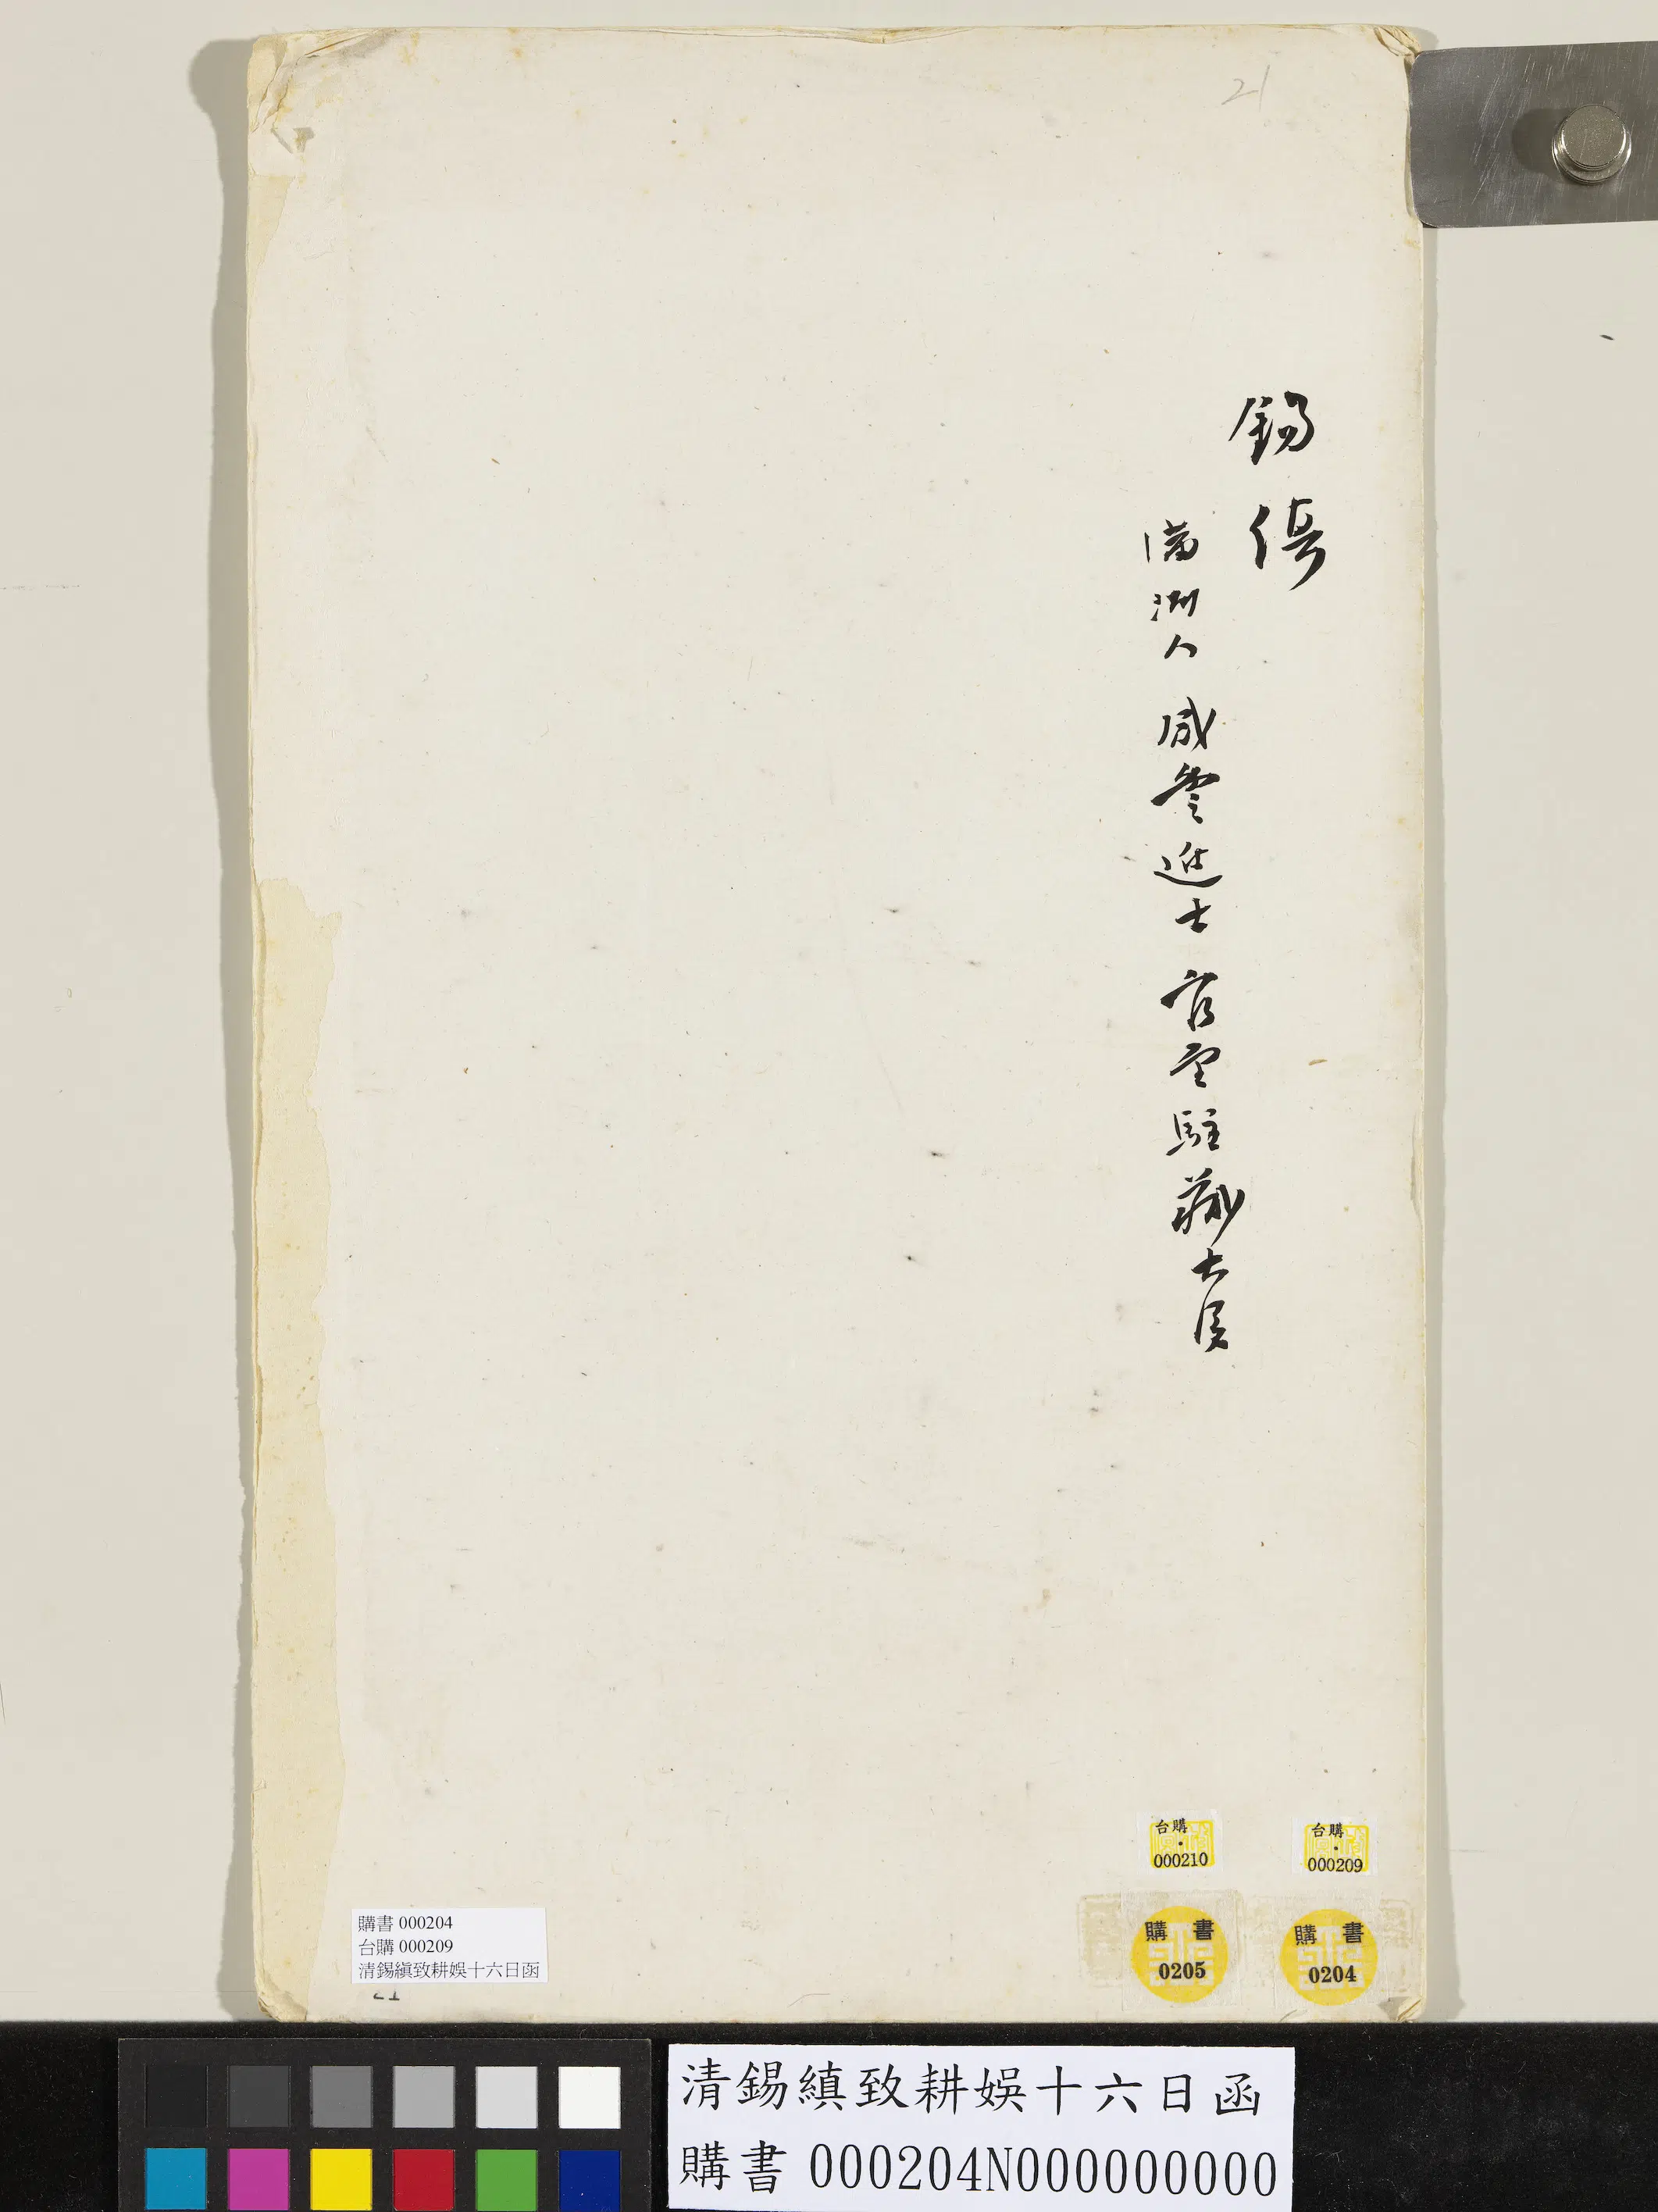 21
錫縝
滿洲人 咸豐進士 官至駐藏大臣
台購
000210
台購
000209
購書
0205
購書
0204
購書 000204
台購 000209
清錫縝致耕娛十六日函
21
清錫縝致耕娛十六日函
購書 000204N000000000